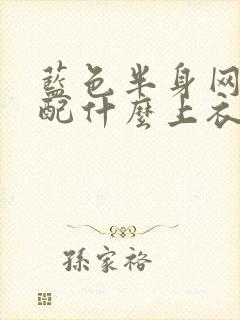 藍色半身网
配什麼上衣
孫家裕